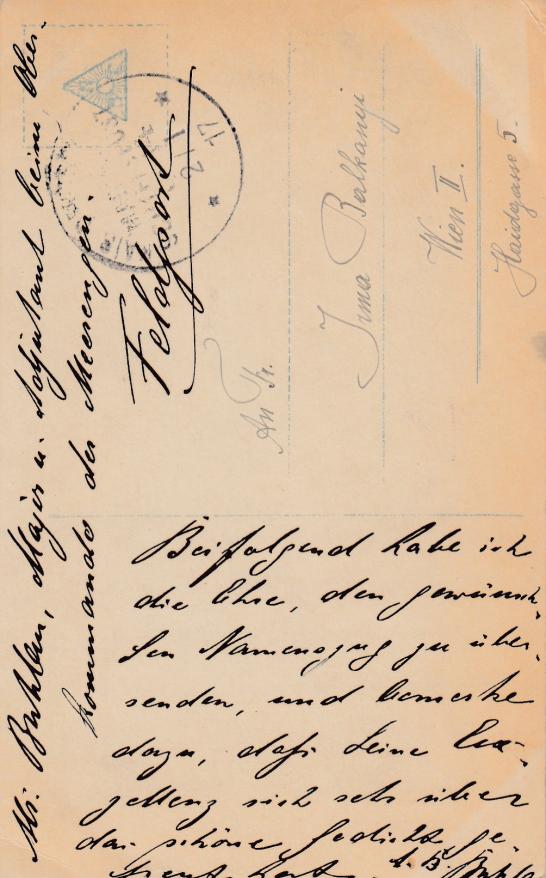 Feldpost
An Fr.
Irma Balkanyi
Wien II.
Haidgasse 5.
Beifolgend habe ich
die Ehre, den gewünsch-
ten Namenszug zu über-
senden, und bemerke
dazu, daß Seine Exz-
ellenz sich sehr über
das schöne Gedicht ge-
freut hat.
Major u. Adjutant beim Ober-
kommando der Meerengen.
17